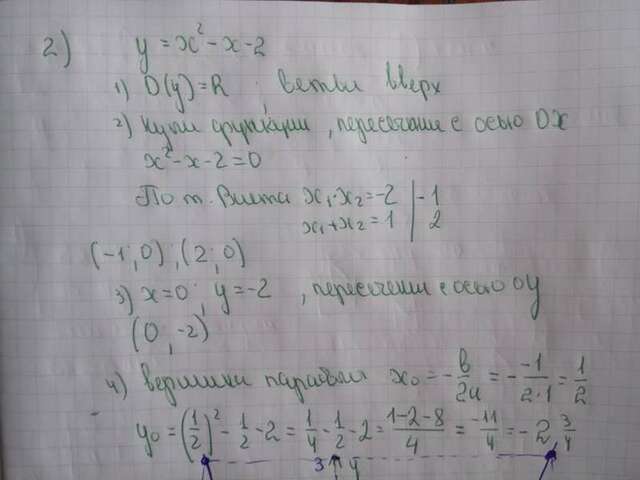 2) y = x² - x - 2
1) D(y) = R ; ветви вверх
2) Нули функции, пересечение с осью OX
x² - x - 2 = 0
По т. Виета x₁·x₂ = -2 | -1
x₁ + x₂ = 1 | 2
(-1; 0); (2; 0)
3) x = 0; y = -2, пересечение с осью OY
(0; -2)
4) вершина параболы x₀ = -в/2a = -(-1)/(2·1) = 1/2
y₀ = (1/2)² - 1/2 - 2 = 1/4 - 1/2 - 2 = (1-2-8)/4 = -11/4 = -2 3/4
3 y